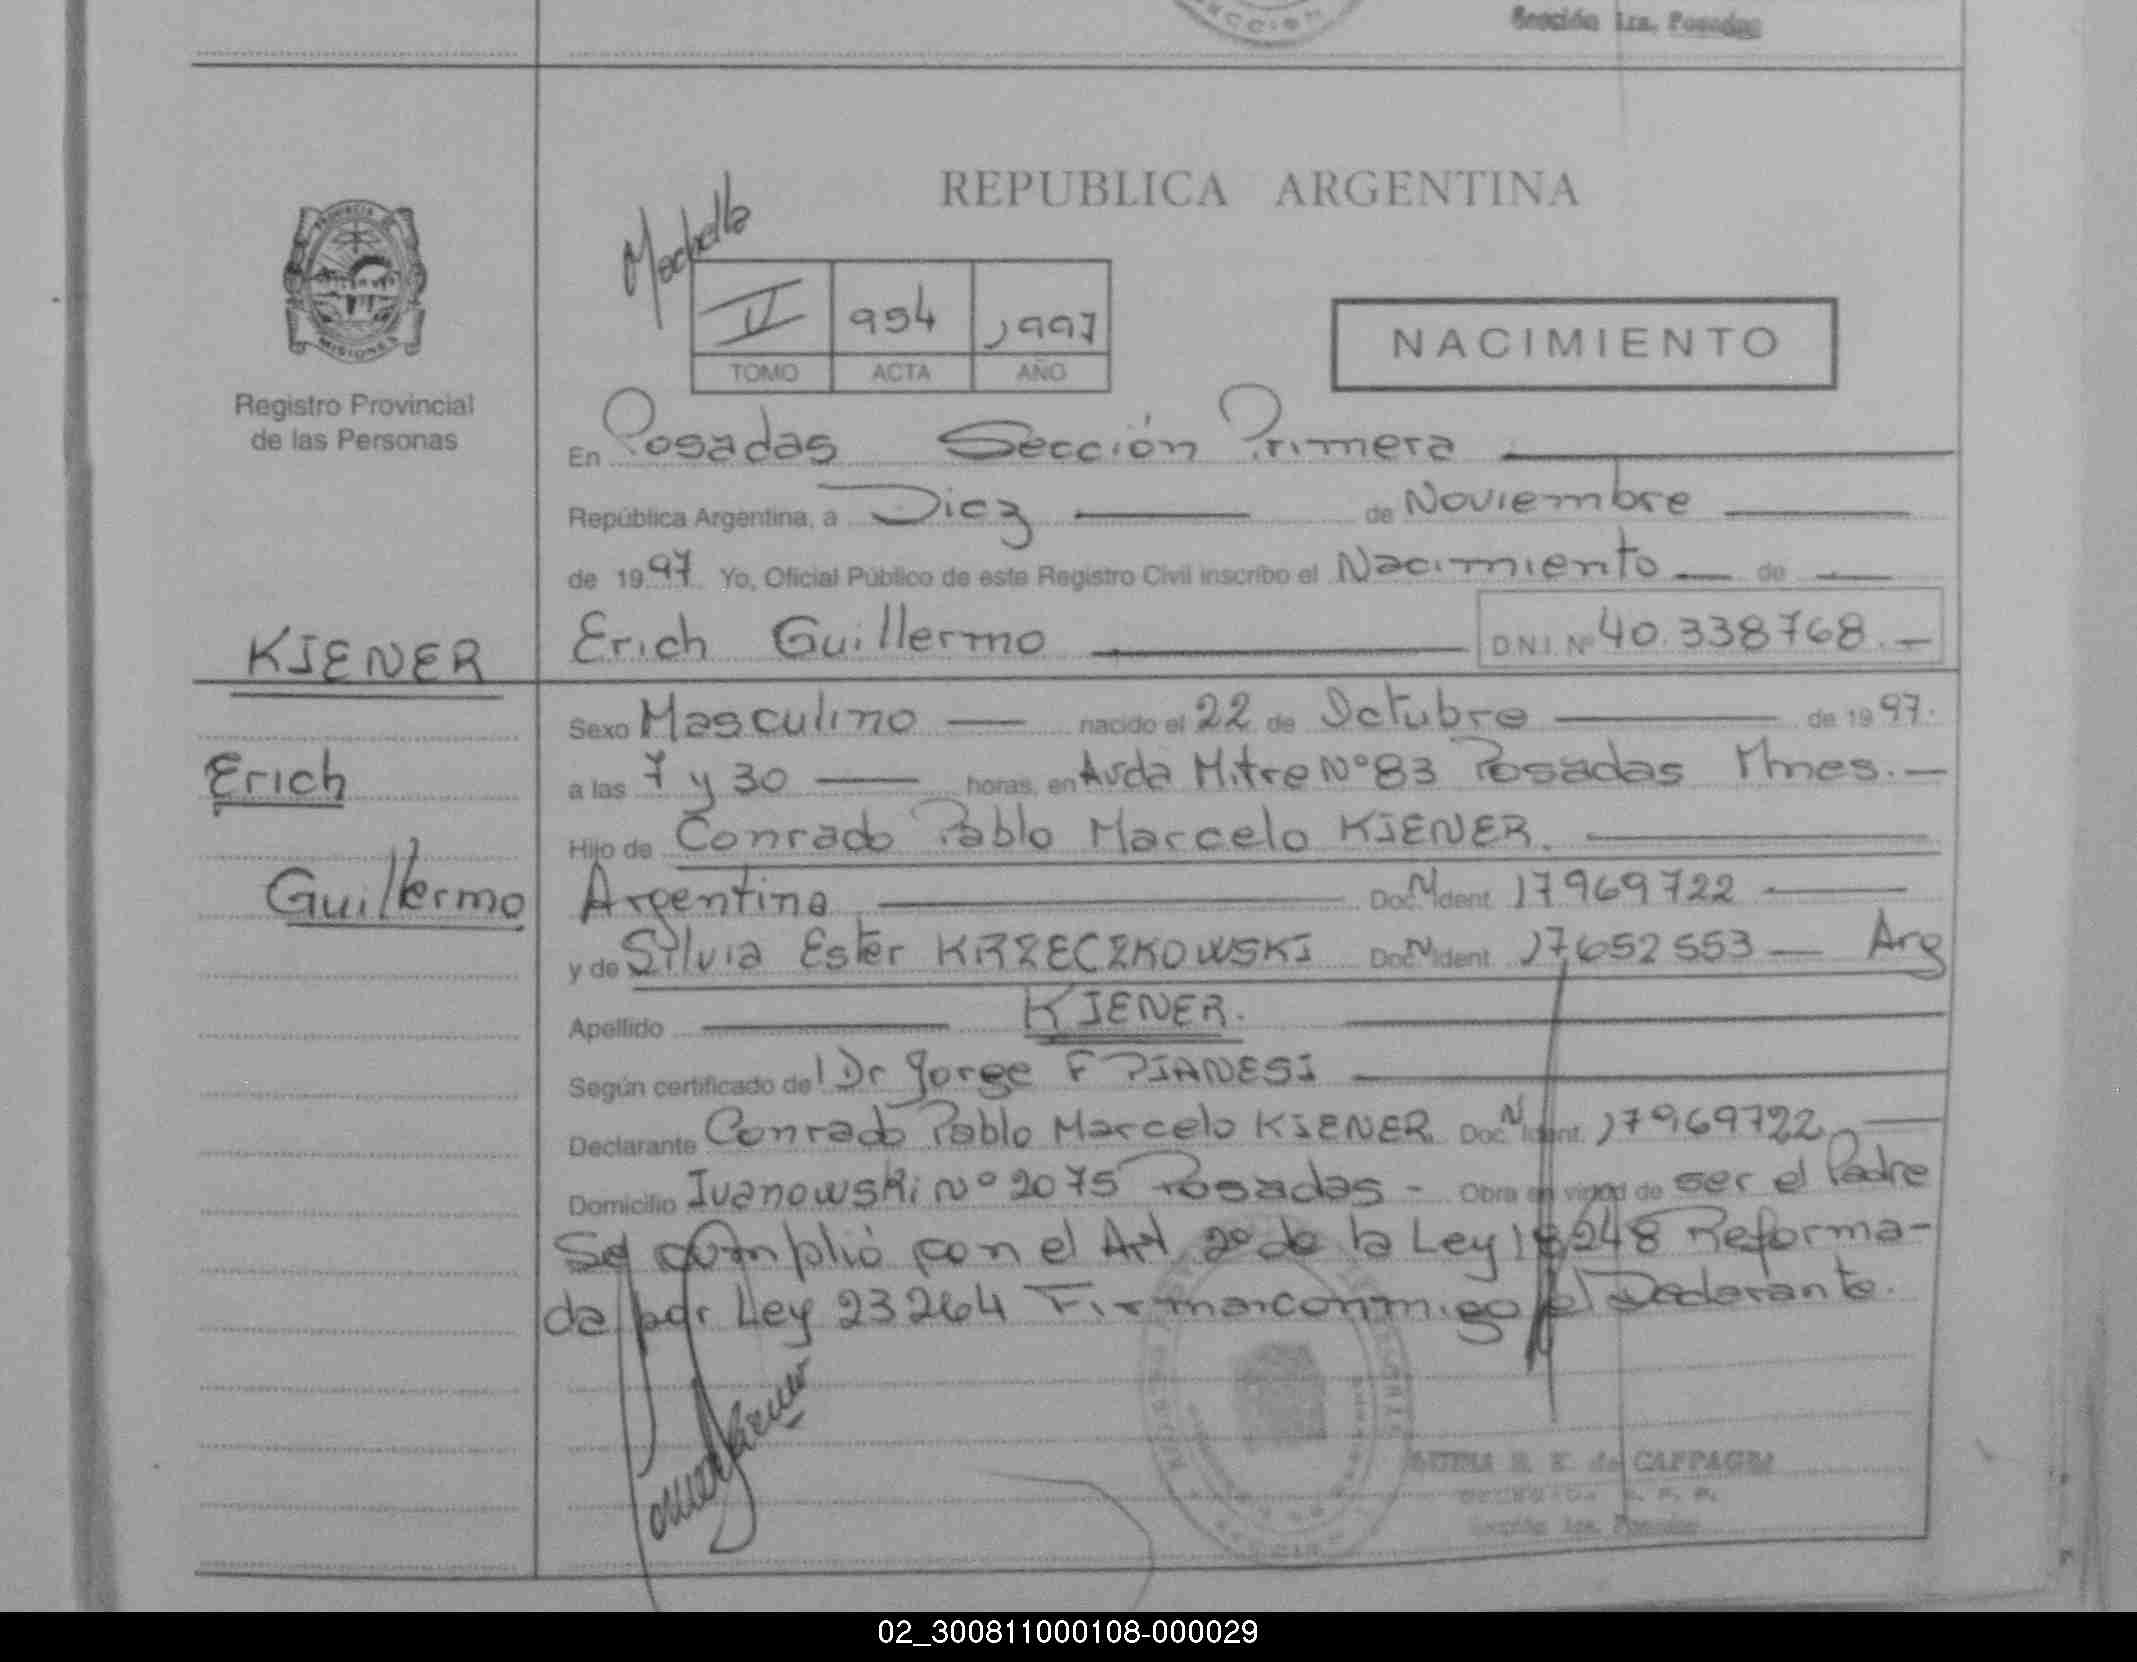 Sección 1ra. Posadas
REPUBLICA ARGENTINA
PROVINCIA DE
MISIONES
Registro Provincial
de las Personas
II 954 1997
TOMO ACTA AÑO
NACIMIENTO
En Posadas Sección Primera
República Argentina, a Diez de Noviembre
de 1997 Yo, Oficial Público de este Registro Civil inscribo el Nacimiento de
KIENER
Erich Guillermo D.N.I. Nº 40.338768.
Sexo Masculino nacido el 22 de Octubre de 1997.
Erich
a las 7 y 30 horas, en Avda Mitre Nº 83 Posadas Mnes.
Hijo de Conrado Pablo Marcelo KIENER.
Guillermo
Argentino Doc. N Ident. 17969722
y de Silvia Ester KRZECZKOWSKI Doc. N Ident. 17652553 Arg
Apellido KIENER.
Según certificado del Dr Jorge F PIANESI
Declarante Conrado Pablo Marcelo KIENER Doc. N Ident. 17969722
Domicilio Ivanowski Nº 2075 Posadas - Obra en virtud de ser el Padre
Se cumplió con el Art 2º de la Ley 18248 Reforma-
da por Ley 23264 Firma conmigo el Declarante.
de CAFFAGNI
Sección 1ra. Posadas
02_300811000108-000029